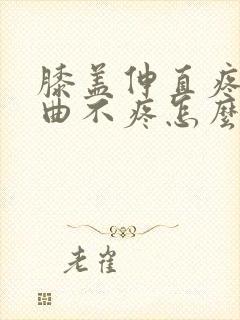 膝盖伸直疼
曲不疼怎麼
老雀